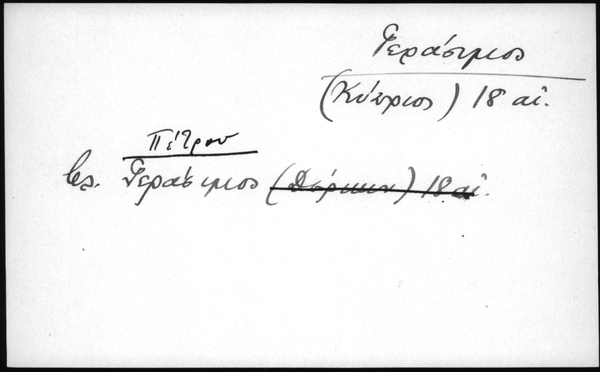 Γεράσιμος
(Κύπριος) 18 αἰ.
Πέτρου
βλ. Γεράσιμος 18 αἰ.